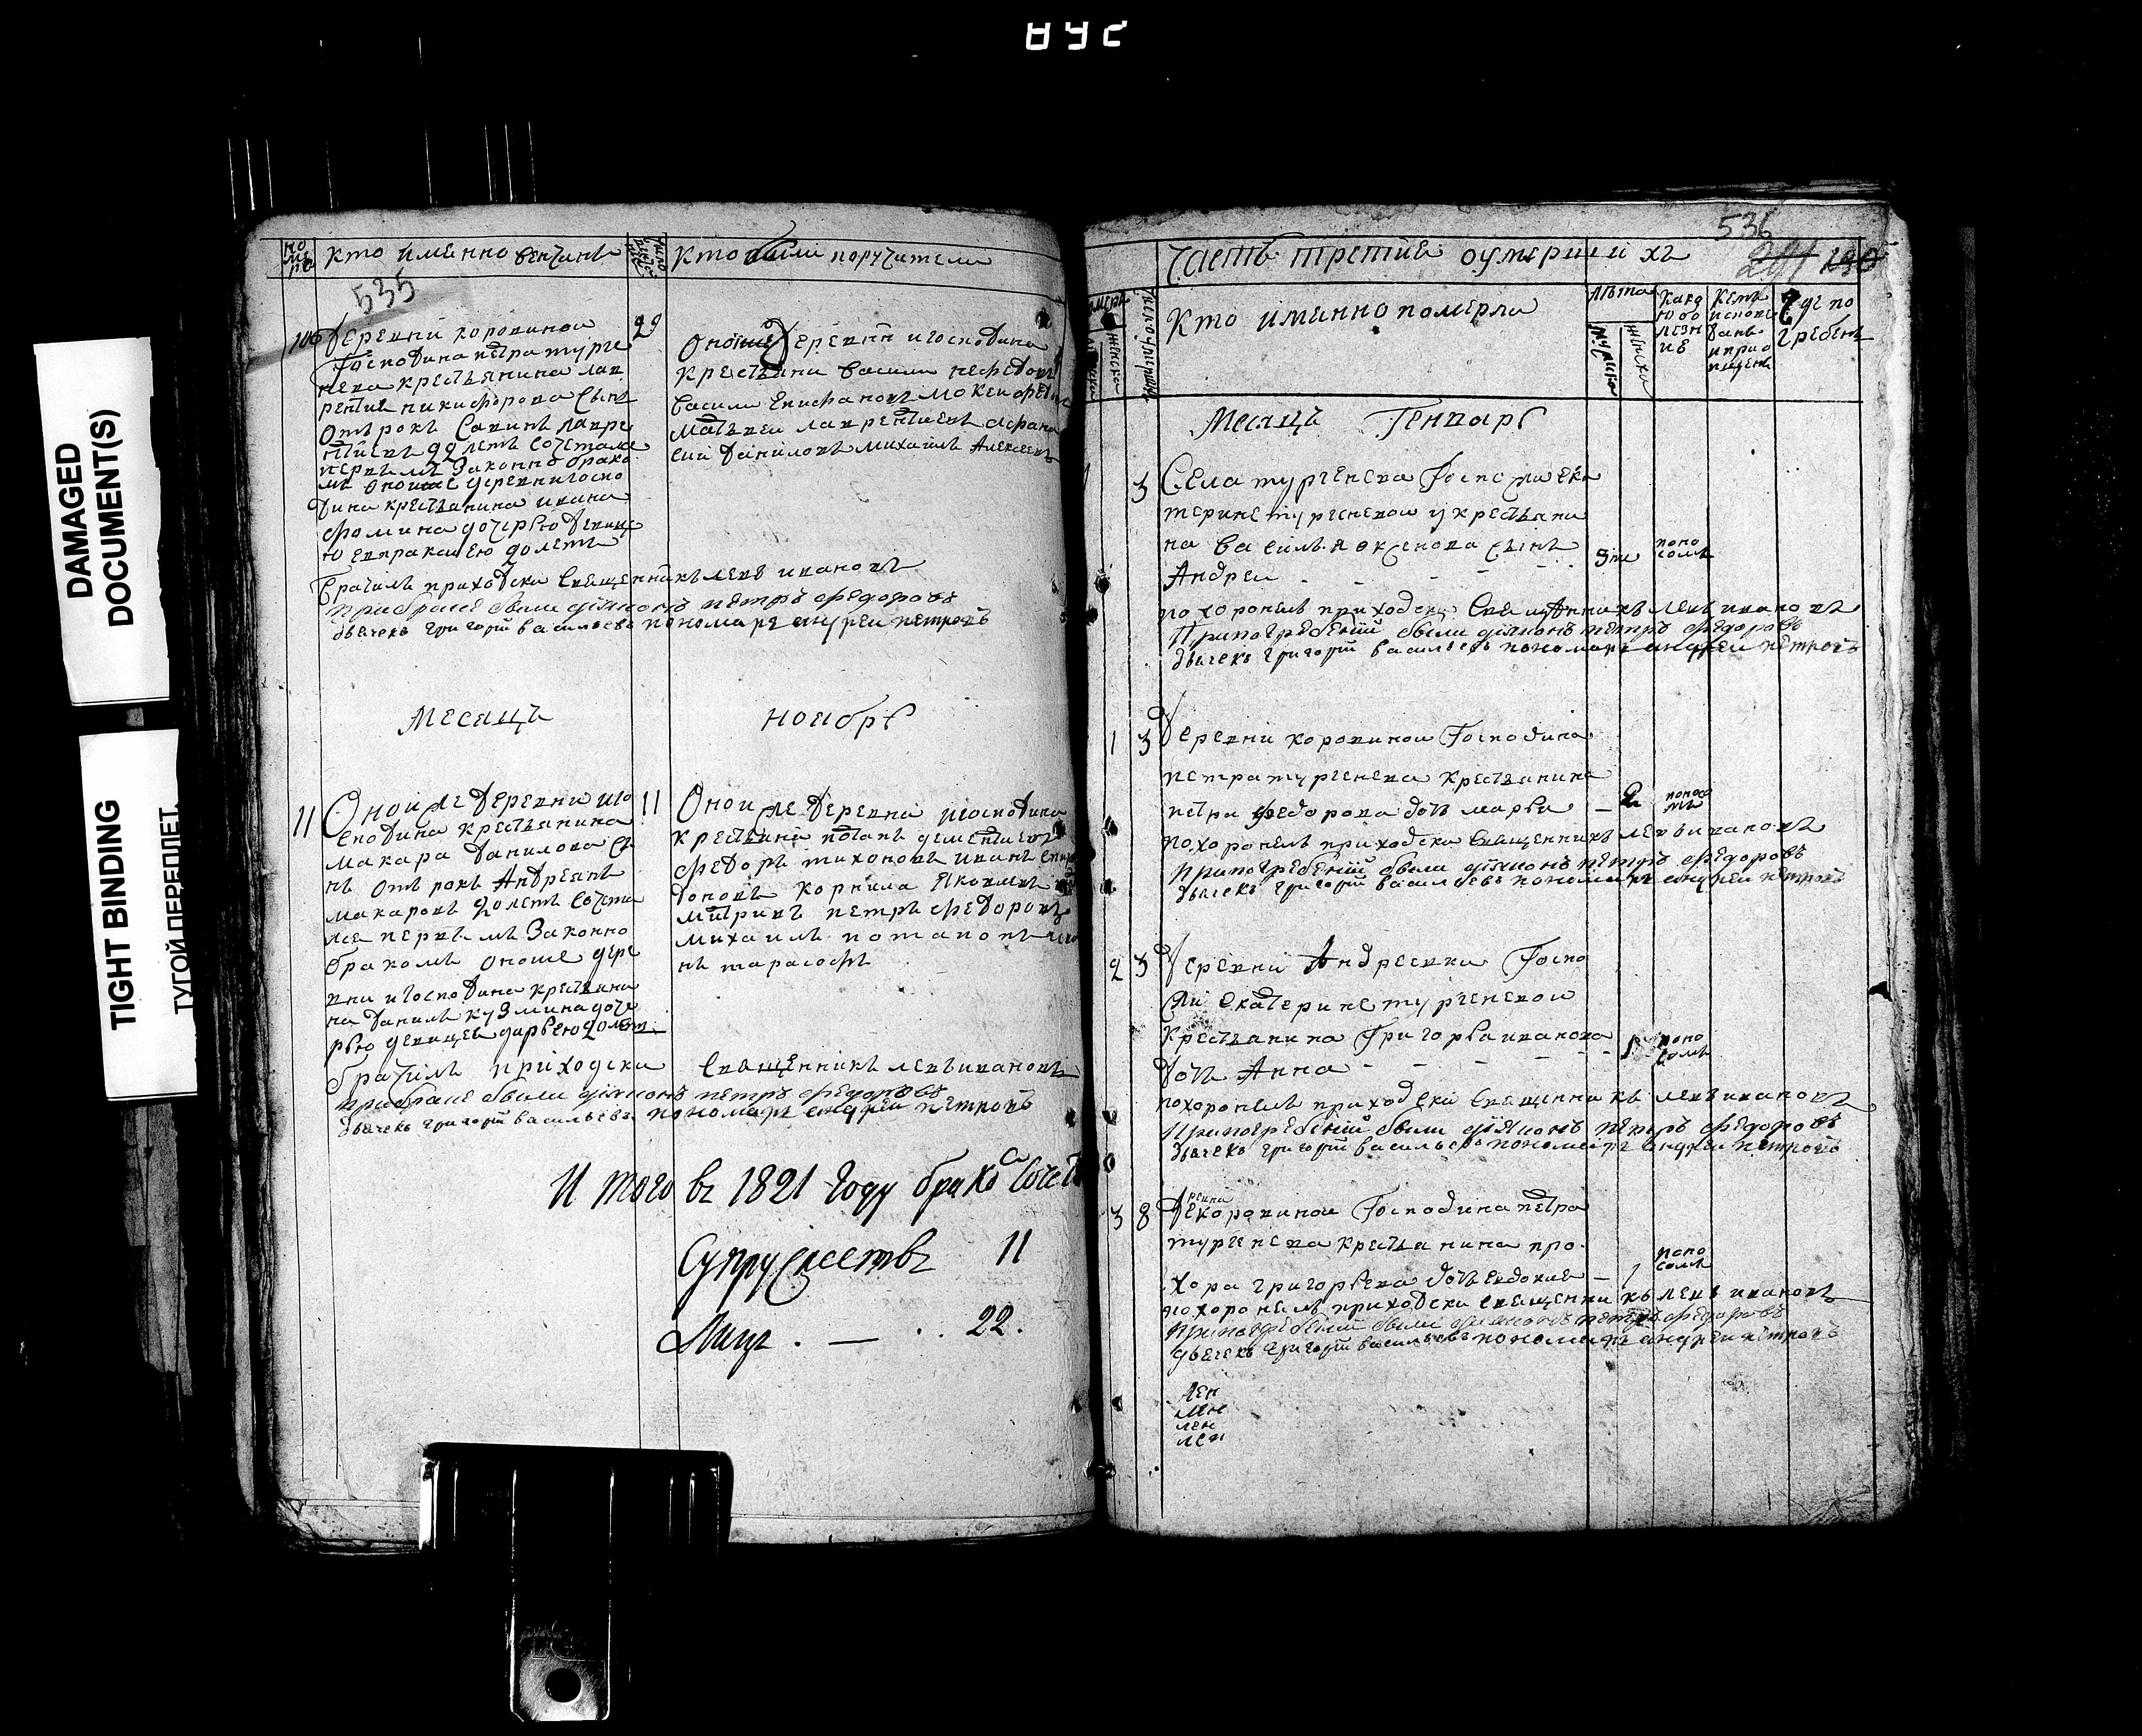 DAMAGED
DOCUMENT(S)
TIGHT BINDING
ТУГОЙ ПЕРЕПЛЕТ.
но
ме
ра
кто именно венчанъ
Кто были поручители
535
10
Деревни коровиной
29
Господина петра турге
нева крестьянина лав
рентия никифорова сынъ
отърокъ Савинъ лавре
нтиевъ 22 летъ сочетале
первымъ Законно брако
мъ оноже деревни госпо
дина крестьянина ивана
фомина дочерью девице
ю евпраксиею 20 летъ
Оноиже деревни и господина
крестьяни василии нефедовъ
василии Епифановъ мокеи
матвеи лаврентиевъ афана
сии даниловъ михаилъ Алексеевъ
Брачилъ приходски Священникъ левъ ивановъ
при браке были диаконъ петръ федоровъ
дьячекъ григорiй васильевъ пономарь андреи петровъ
Месяцъ ноябрь
11
Онои же деревни и го
сподина крестьянина
макара данилова сы
нъ отъ рокъ Андреянъ
макаровъ 20 летъ сочета
лся первымъ Законно
бракомъ оноже дере
вни и господина крестьяни
на данилы кузмина доче
рью девицеи дарьею 20 летъ
11
Онои же деревни и господина
крестьяни потапъ дементиевъ
федоръ тихоновъ иванъ спири
доновъ корнила Яковлевъ
митривъ петръ федоровъ
михаилъ потаповъ
нъ тарасофъ
брачилъ приходски священникъ левъ ивановъ
прибраке были диаконъ петръ федоровъ
дьячекъ григорiй васильевъ пономарь андреи петровъ
И того въ 1821 году брако сочет
Супружествъ 11
Лицъ . — . . 22.
536
Часть третия оумершиихъ
Кто именно померли
лѣта
мужеска
женска
какою бо
лезн
ие
Кемъ
исповѣ
данъ
и прио
бщенъ
Где по
гребенъ
Месяцъ Генварь
3
Села тургенева Госпожи ека
терине тургеневои у крестьяни
на василья оксенова сынъ
Андреи
5ти
поно
сомъ
похоронилъ приходски Священникъ левъ ивановъ
При погребении были диаконъ петръ федоровъ
дьячекъ григорiй васильевъ пономарь андреи петровъ
1 3
Деревни коровинои Господина
петра тургенева крестьянина
петра федорова дочь марья
2
поносо
мъ
похоронилъ приходски священникъ левъ ивановъ
При погребении были диаконъ петръ федоровъ
дьячекъ григорiй васильевъ пономарь андреи петровъ
2 5
Деревни Андреевки Госпо
жи екатерине тургеневои
крестьянина Григорья иванова
дочь Анна
поно
сомъ
похоронилъ приходски священникъ левъ ивановъ
При погребении были диаконъ петръ федоровъ
дьячекъ григорiй васильевъ пономарь андреи петровъ
3 8
Деревни коровинои Господина петра
тургенева крестьянина про
хора григорьева дочь евдокия
1
поно
сомъ
похоронилъ приходски священникъ левъ ивановъ
При погребении были диаконъ петръ федоровъ
дьячекъ григорiй васильевъ пономарь андреи петровъ